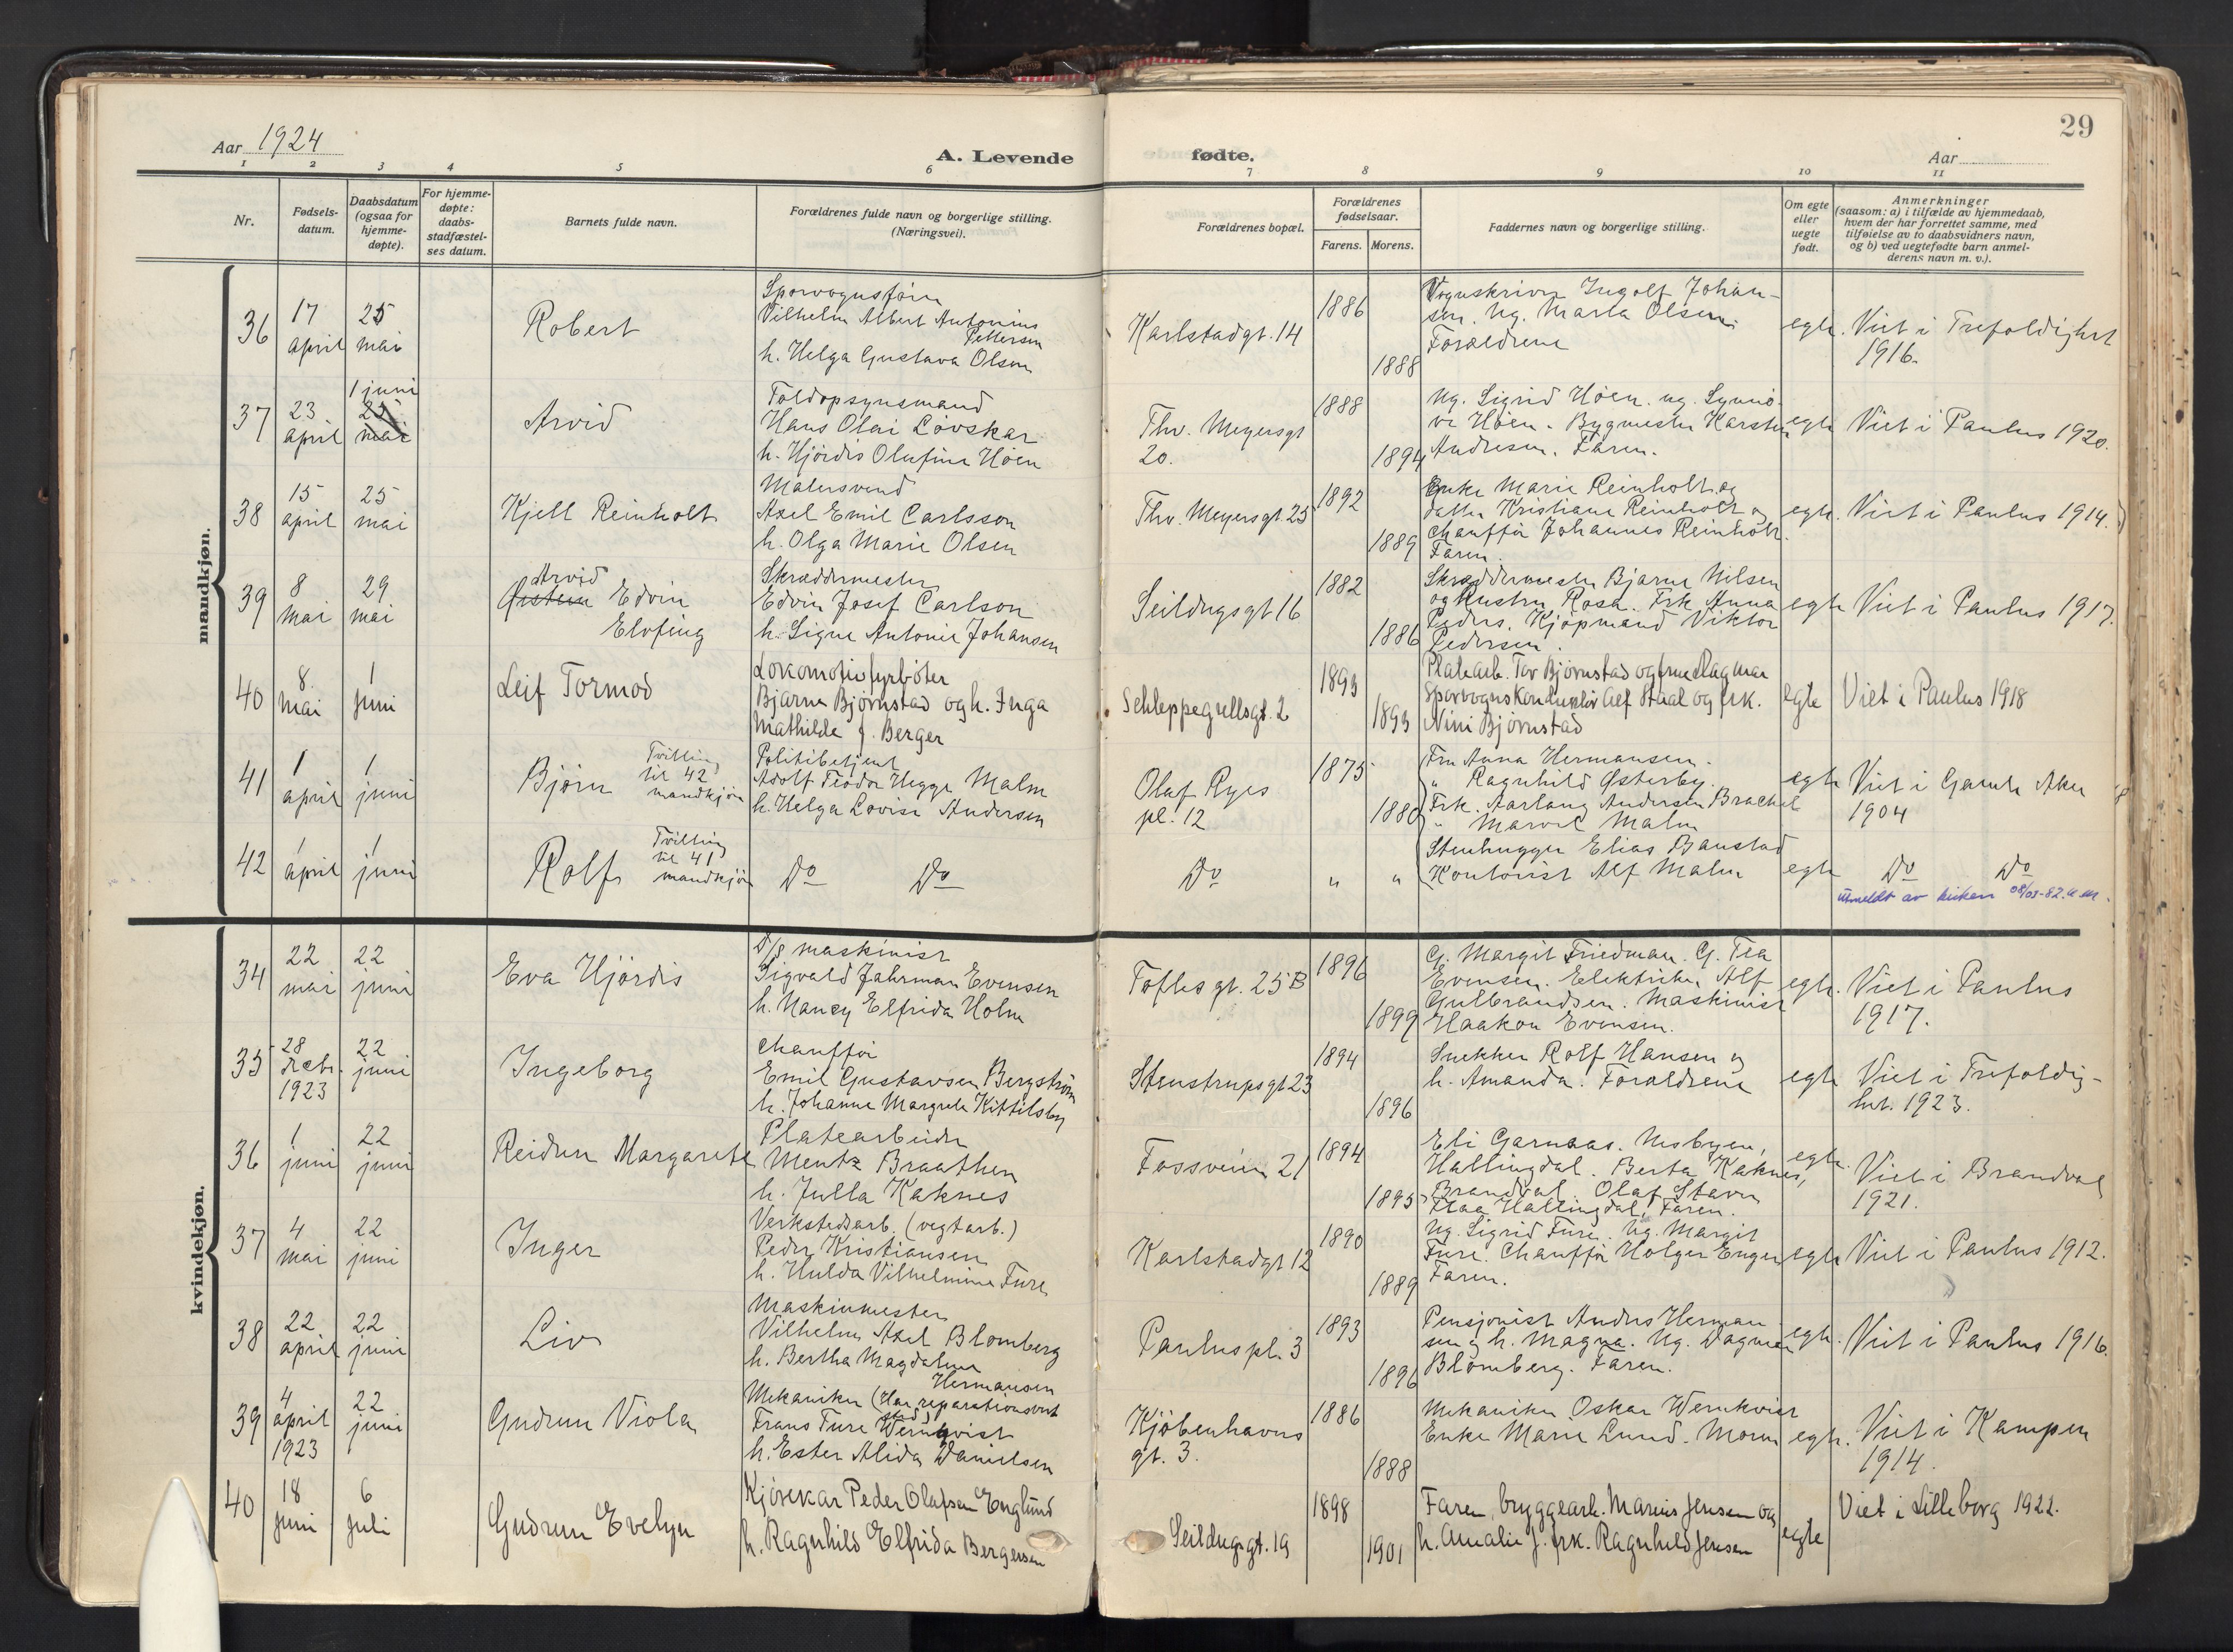 Aar 1924
A. Levende
fødte.
29
Aar
1 2 3 4 5 6 7 8 9 10 11
Nr.
Fødsels-
datum.
Daabsdatum
(ogsaa for
hjemme-
døpte).
For hjemme-
døpte:
daabs-
stadfæstel-
ses datum.
Barnets fulde navn.
Forældrenes fulde navn og borgerlige stilling.
(Næringsvei).
Forældrenes bopæl.
Forældrenes
fødselsaar.
Farens. Morens.
Faddernes navn og borgerlige stilling.
Om egte
eller
uegte
født.
Anmerkninger
(saasom: a) i tilfælde av hjemmedaab,
hvem der har forrettet samme, med
tilføielse av to daabsvidners navn,
og b) ved uegtefødte barn anmel-
derens navn m. v.).
mandkjøn.
36
17
april
25
mai
Robert
Sporvognsfører
Vilhelm Albert Antonius
Pettersen
h. Helga Gustava Olsen
Karlstadgt. 14
1886
1888
Vognskriver Ingolf Johan-
sen. Ug. Marta Olsen.
Forældrene
egte.
Viet i Trefoldighet
1916.
37
23
april
1 juni
25
mai
Arvid
Toldopsynsmand
Hans Olai Løvskar
h. Hjördis Olufine Höen
Thv. Meyersgt
20.
1888
1894
Ug. Sigrid Höen. ug. Synnö-
ve Höen. Bygmester Karsten
Andresen. Faren.
egte
Viet i Paulus 1920.
38
15
april
25
mai
Kjell Reinholt
Malersvend
Axel Emil Carlsson
h. Olga Marie Olsen
Thv. Meyersgt. 25
1892
1889
Enke Marie Reinholt og
datter Kristiane Reinholt og
chauffør Johannes Reinholt.
Faren.
egte.
Viet i Paulus 1914.
39
8
mai
29
mai
Arvid
Øistein Edvin
Elofing
Skræddermester
Edvin Josef Carlson
h. Signe Antonie Johansen
Seildugsgt 16
1882
1886
Skræddermester Bjarne Nilsen
og hustru Rosa. Frk Anna
Peders. Kjöpmand Viktor
Pedersen.
egte
Viet i Paulus 1917.
40
8
mai
1
juni
Leif Tormod
Lokomotivfyrbøter
Bjarne Bjørnstad og h. Inga
Mathilde f. Berger
Schleppegrellsgt. 2
1893
1893
Platearb. Tor Bjørnstad og frue Dagmar
Sporvognskonduktør Alf Staal og frk.
Nini Bjørnstad
egte
Viet i Paulus 1918
41
1
april
1
juni
Björn
Tvilling
til 42
mandkjøn
Politibetjent
Adolf Teodor Hegge Malm
h. Helga Lovise Andersen
Olaf Ryes
pl. 12
1875
1880
Fru Anna Hermansen.
" Ragnhild Østerby.
Frk. Aarlaug Andersen Brachel
" Marvel Malm
egte
Viet i Gamle Aker
1904
42
1
april
1
juni
Rolf
Tvilling
til 41
mandkjøn
Do Do
Do
" "
Stenhugger Elias Baustad
Kontorist Alf Malm
egte
Do Do
Utmeldt av kirken 08/03-82.
kvindekjøn.
34
22
mai
22
juni
Eva Hjördis
D/s maskinist
Sigvald Fahrman Evensen
h. Nancy Elfrida Holm
Toftesgt. 25 B
1896
1899
G. Margit Friedman. G. Tea
Evensen. Elektriker Alf
Gulbrandsen. Maskinist
Haakon Evensen.
egte.
Viet i Paulus
1917.
35
28
Febr.
1923
22
juni
Ingeborg
Chauffør
Emil Gustavsen Bergström
h. Johanne Margrete Kittilsby
Stenstrupsgt 23
1894
1896
Snekker Rolf Hansen og
h. Amanda. Forældrene
egte
Viet i Trefoldig-
het. 1923.
36
1
juni
22
juni
Reidun Margarete
Platearbeider
Mentz Braathen
h. Julla Kaknes
Fossveien 21
1894
1895
Eli Garnaas. Nesbyen,
Hallingdal. Berta Kaknes,
Brandval. Olaf Stavn
Flaa Hallingdal, Faren.
egte.
Viet i Brandval
1921.
37
4
mai
22
juni
Inger
Verkstedsarb. (vegtarb.)
Peder Kristiansen
h. Hulda Vilhelmine Fure
Karlstadgt 12
1890
1889
Ug. Sigrid Fure. Ug. Margit
Fure. Chauffør Holger Enger
Faren.
egte
Viet i Paulus 1912.
38
22
april
22
juni
Liv
Maskinmester
Vilhelm Axel Blomberg
h. Bertha Magdalene
Hermansen
Pauluspl. 3
1893
1896
Pensjonist Anders Herman-
sen og h. Magna. Ug. Dagmar
Blomberg. Faren.
egte.
Viet i Paulus 1916.
39
4
april
1923
22
juni
Gudrun Viola
Mekaniker (Har reparationsverk
sted)
Frans Ture Wernqvist
h. Ester Alida Danielsen
Kjöbenhavns
gt. 3.
1886
1888
Mekaniker Oskar Wernkvist
Enke Marie Lund. Moren
egte.
Viet i Kampen
1914.
40
18
juni
6
juli
Gudrun Evelyn
Kjørekar Peder Olafsen Englund
h. Ragnhild Elfrida Bergersen
Seildugsgt. 19
1898
1901
Faren, bryggearb. Marius Jensen og
h. Amalie J. frk. Ragnhild Jensen
egte
Viet i Lilleborg 1922.